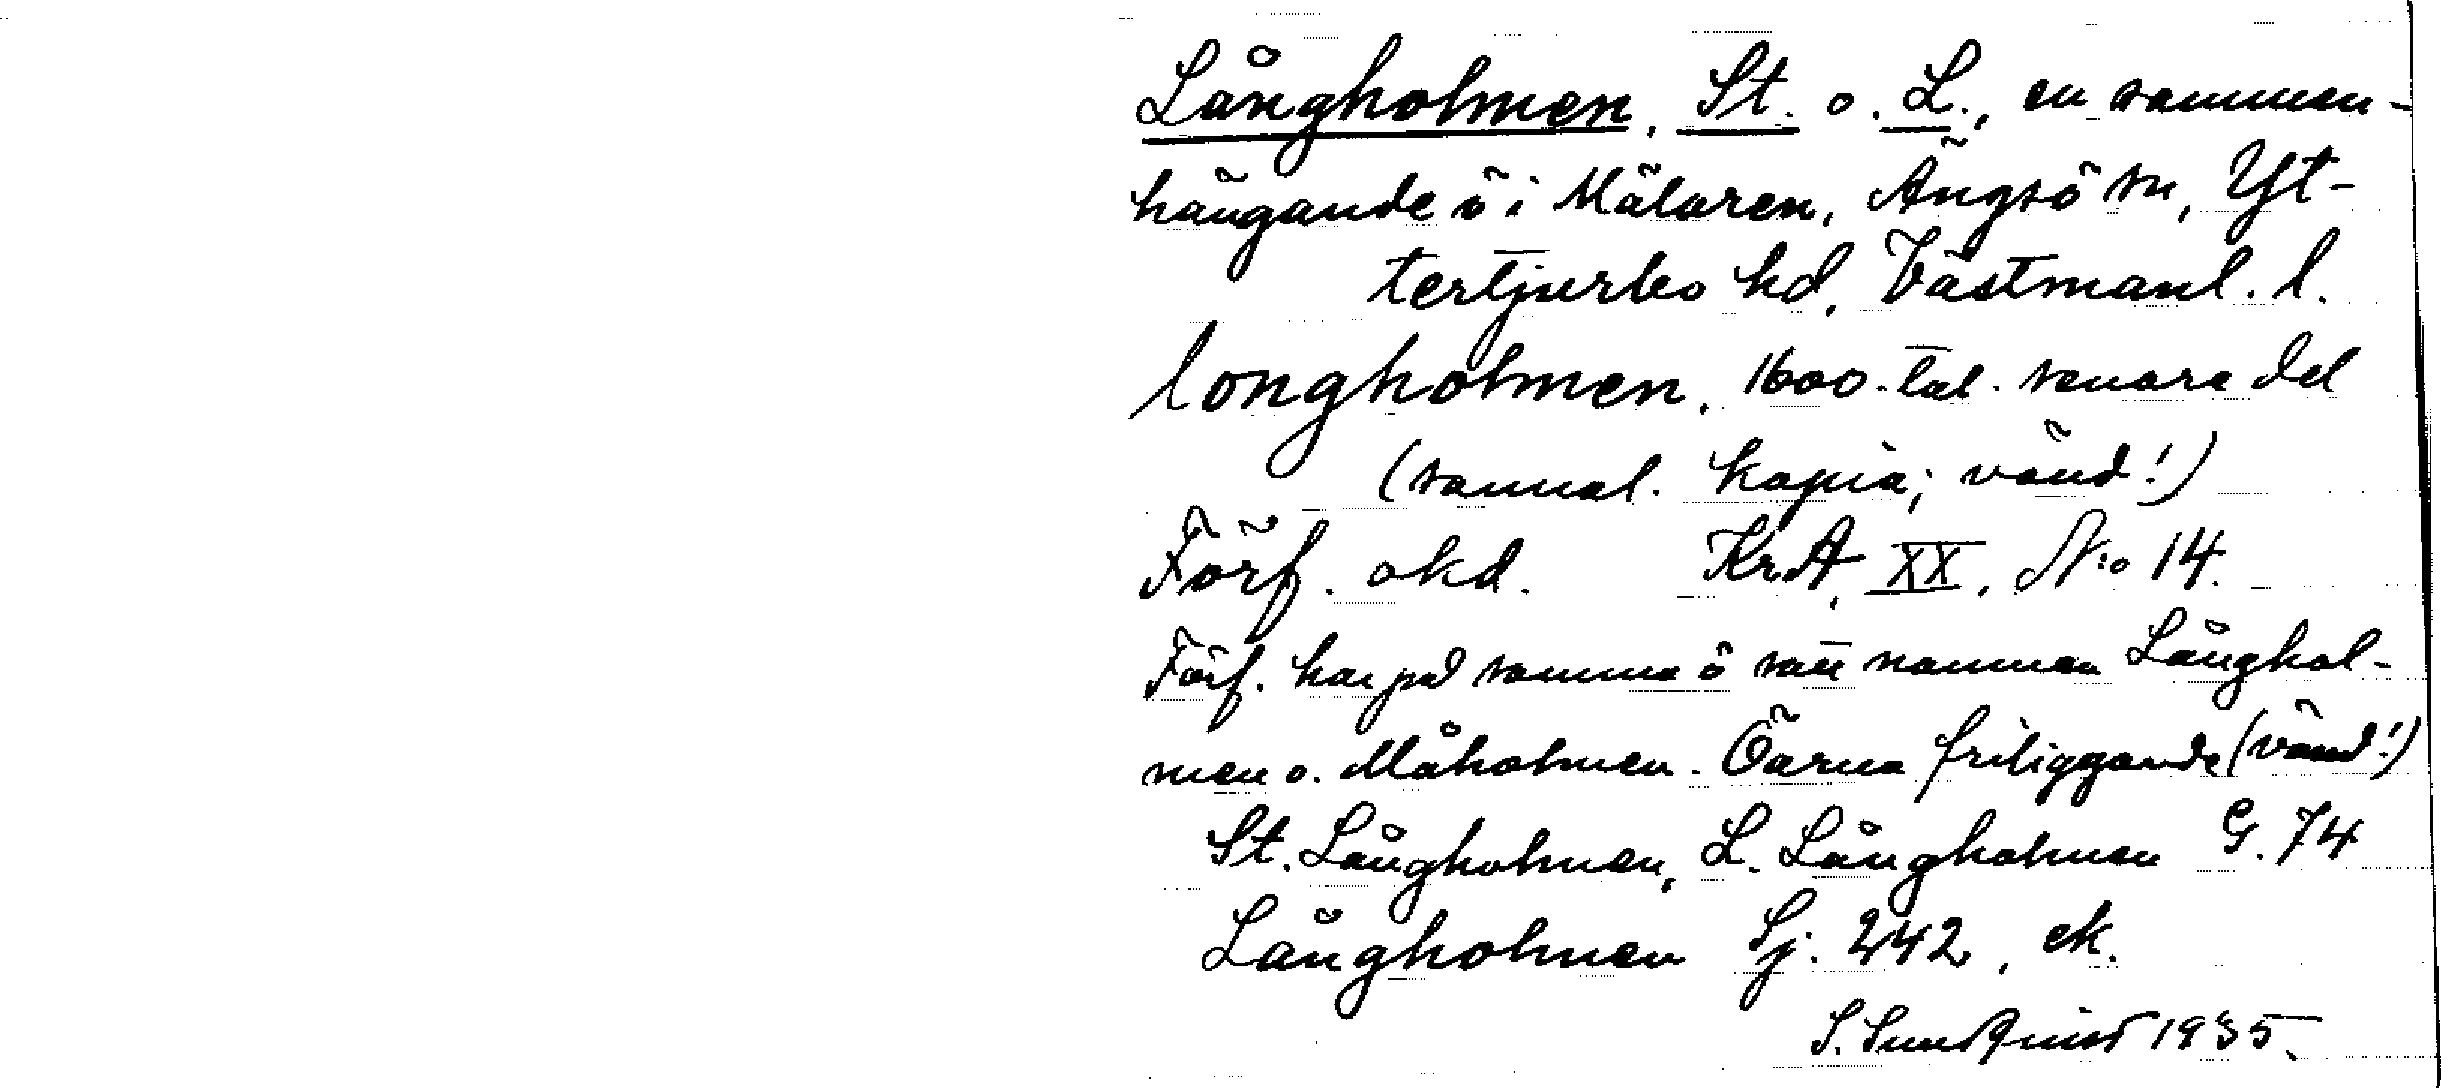 Långholmen, St. o. L., en samman-
hängande ö i Mälaren, Ängsö sn, Yt-
tertjurbo hd, Västmanl. l.
longholmen, 1600-tal. senare del
(sannol. kopia; vänd!)
Förf. okd. KrA, XX, N:o 14.
Förf. har på samma ö satt namnen Långhol-
men o. Måholmen. Öarna friliggande (vänd!)
St. Långholmen, L. Långholmen G. 74
Långholmen Sj. 242, ek.
S. Sundquist 1935.